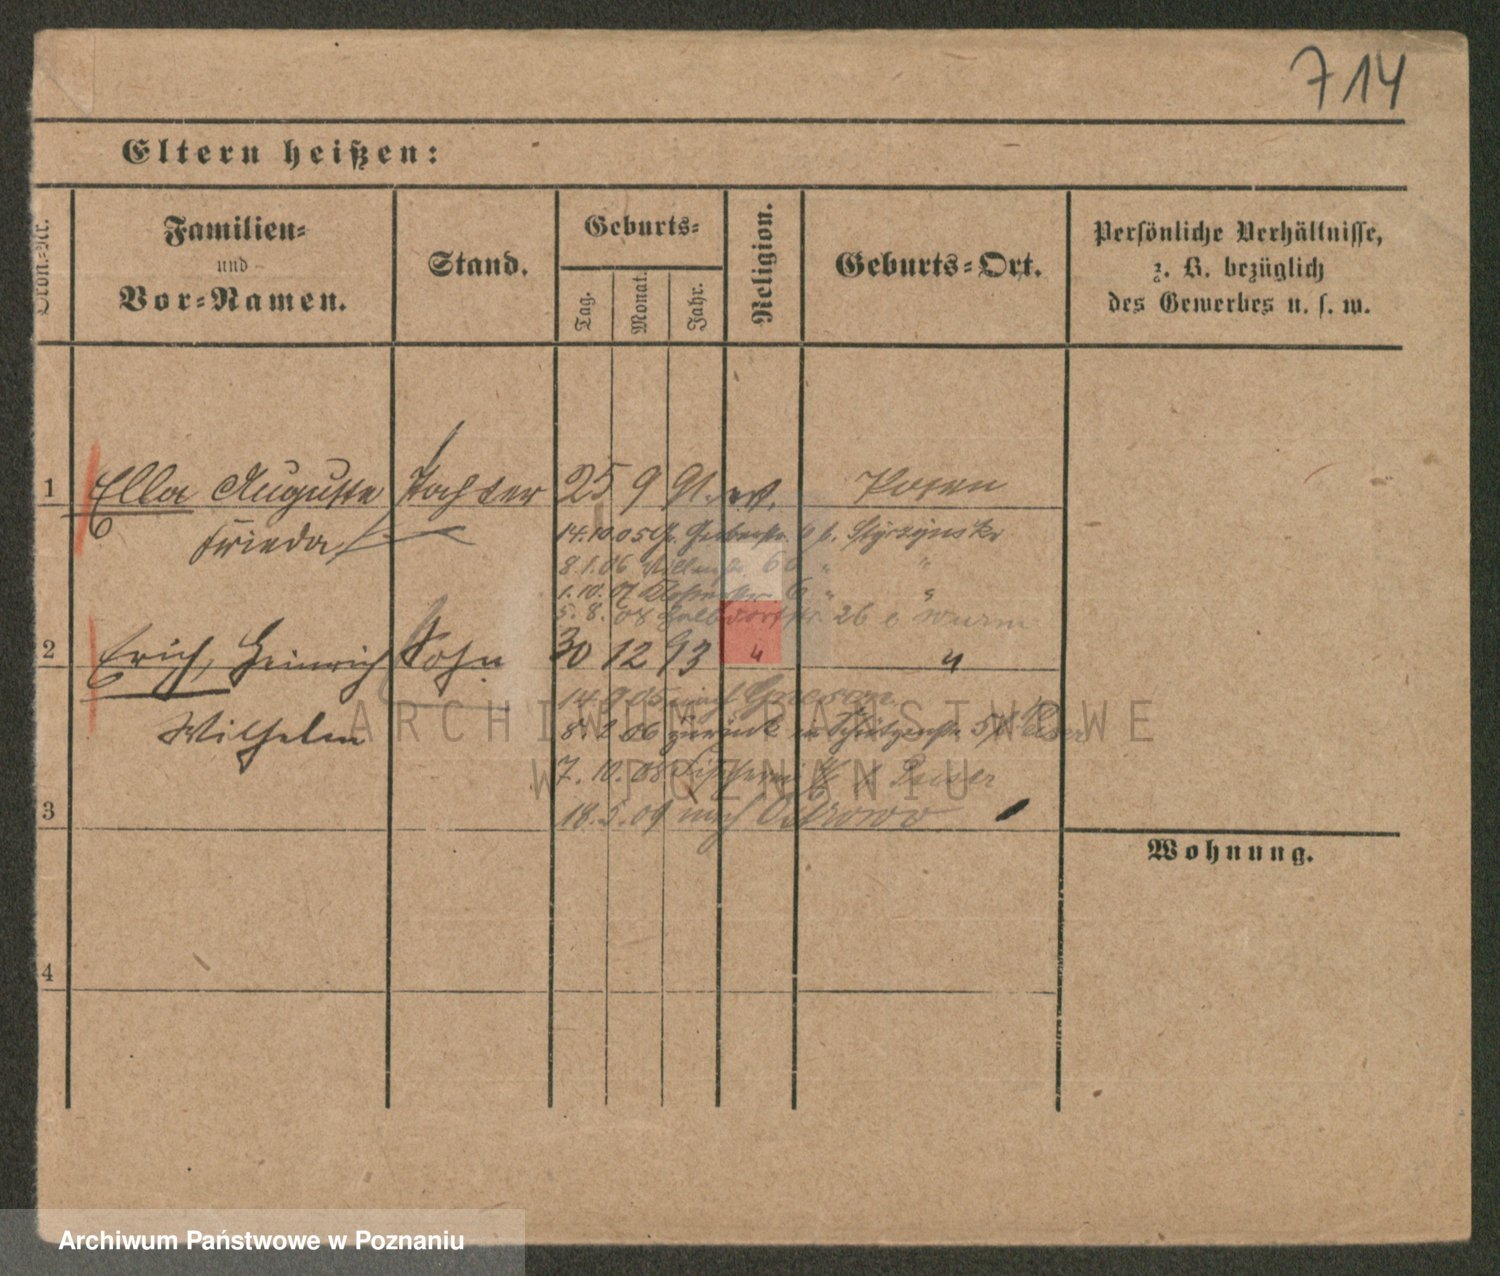 714
Eltern heißen:
Ordn.-Nr.
Familien-
und
Vor-Namen.
Stand.
Geburts-
Tag.
Monat.
Jahr.
Religion.
Geburts-Ort.
Persönliche Verhältnisse,
z. B. bezüglich
des Gewerbes u. s. w.
1 Ella Auguste Tochter 25 9 91. ev. Posen
Frieda
14.10.05 6 b. Styrzynski
8.1.06 60 " "
1.10.07 6 " "
5.8.08 26 Wurm
2 Erich, Heinrich Sohn 30 12 93 " "
Wilhelm
14.9.05 nach Gnesen
8.2.06 zurück Schützenstr. 5
7.10.08
18.5.09 nach Ostrowo
3
Wohnung.
4
ARCHIWUM PAŃSTWOWE
W POZNANIU
Archiwum Państwowe w Poznaniu